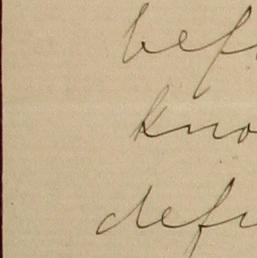 bef
kno
defi